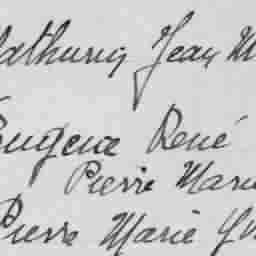 Mathurin Jean M
Eugène René
Pierre Marie
Pierre Marie Yv